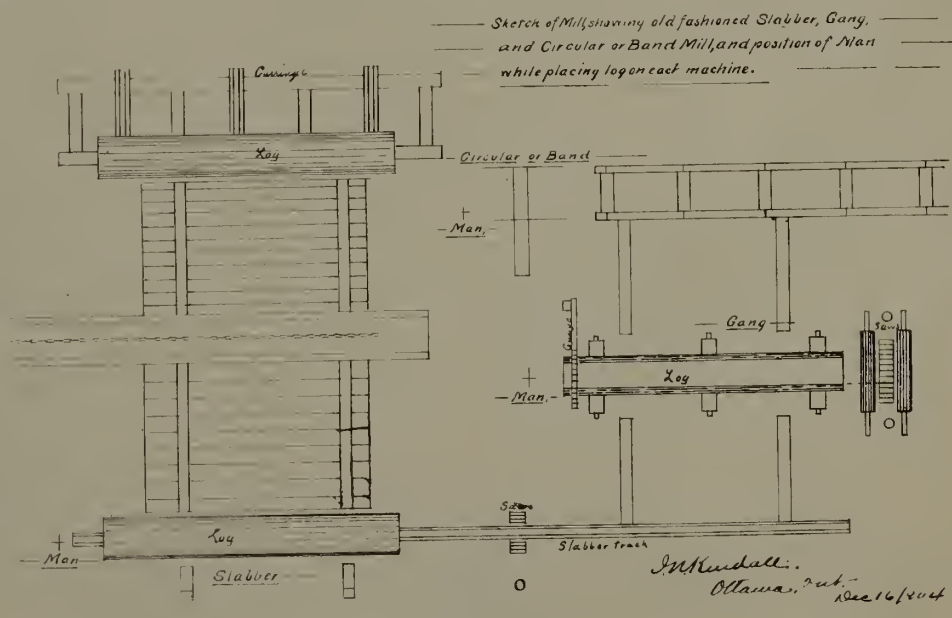 Sketch of Mill, showing old fashioned Slabber, Gang,
and Circular or Band Mill, and position of Man
while placing log on each machine.
Carriage
Log
Circular or Band
Man,
Gang
Saws
Gauge
Log
Man,
Saws
Log
Man
Slabber track
Slabber
J.N. Kendall.
Ottawa,
Dec 16/